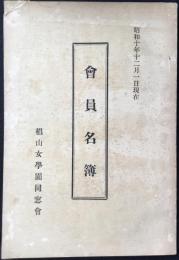 昭和十年十二月一日現在
會員名簿
椙山女學園同窓會